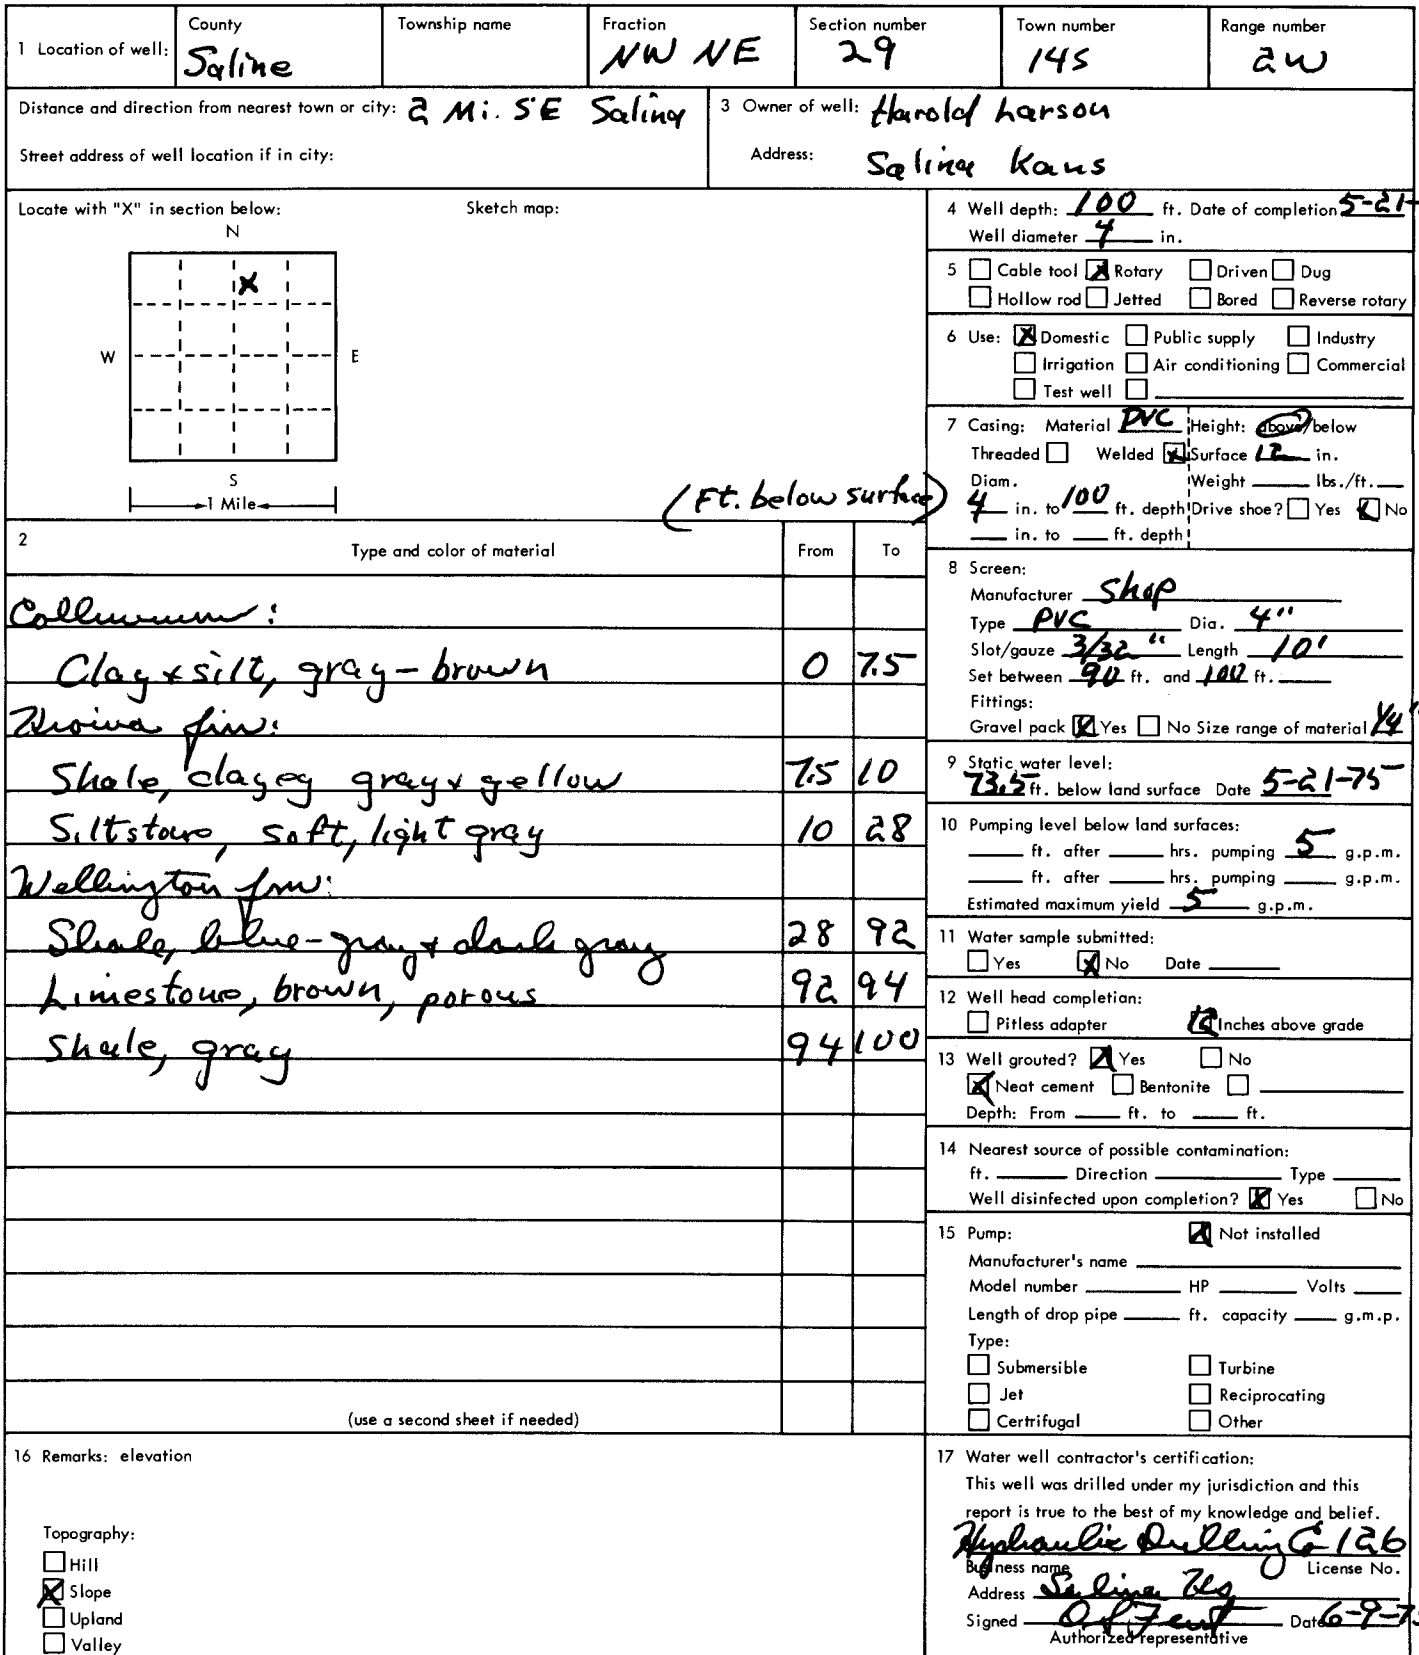 1 Location of well:
County
Saline
Township name
Fraction
NW NE
Section number
29
Town number
14S
Range number
2W
Distance and direction from nearest town or city: 2 Mi. SE Salina
Street address of well location if in city:
3 Owner of well: Harold Larson
Address: Salina Kans
Locate with "X" in section below:
Sketch map:
N
X
W
E
S
1 Mile
(Ft. below surface)
2
Type and color of material
From
To
Colluvium:
Clay & silt, gray - brown 0 7.5
Kiowa fm:
Shale, clayey gray & yellow 7.5 10
Siltstone, soft, light gray 10 28
Wellington fm:
Shale, blue-gray & dark gray 28 92
Limestone, brown, porous 92 94
Shale, gray 94 100
(use a second sheet if needed)
16 Remarks: elevation
Topography:
Hill
X Slope
Upland
Valley
4 Well depth: 100 ft. Date of completion 5-21-
Well diameter 4 in.
5 Cable tool X Rotary Driven Dug
Hollow rod Jetted Bored Reverse rotary
6 Use: X Domestic Public supply Industry
Irrigation Air conditioning Commercial
Test well
7 Casing: Material PVC Height: above/below
Threaded Welded X Surface 12 in.
Diam. Weight lbs./ft.
4 in. to 100 ft. depth Drive shoe? Yes X No
in. to ft. depth
8 Screen:
Manufacturer Shop
Type PVC Dia. 4"
Slot/gauze 3/32" Length 10'
Set between 90 ft. and 100 ft.
Fittings:
Gravel pack X Yes No Size range of material 1/4"
9 Static water level:
73.5 ft. below land surface Date 5-21-75
10 Pumping level below land surfaces:
ft. after hrs. pumping 5 g.p.m.
ft. after hrs. pumping g.p.m.
Estimated maximum yield 5 g.p.m.
11 Water sample submitted:
Yes X No Date
12 Well head completion:
Pitless adapter 12 Inches above grade
13 Well grouted? X Yes No
X Neat cement Bentonite
Depth: From ft. to ft.
14 Nearest source of possible contamination:
ft. Direction Type
Well disinfected upon completion? X Yes No
15 Pump: X Not installed
Manufacturer's name
Model number HP Volts
Length of drop pipe ft. capacity g.m.p.
Type:
Submersible Turbine
Jet Reciprocating
Certrifugal Other
17 Water well contractor's certification:
This well was drilled under my jurisdiction and this
report is true to the best of my knowledge and belief.
Hydraulic Drilling Co 126
Business name License No.
Address Salina Ks
Signed Date 6-9-75
Authorized representative